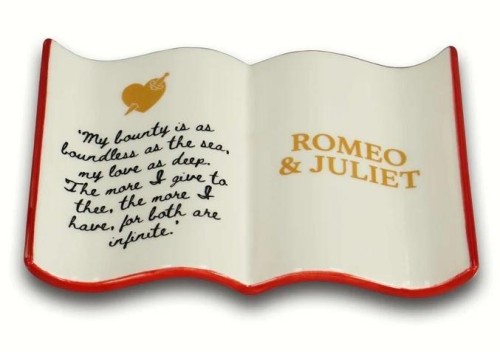 'My bounty is as
boundless as the sea,
my love as deep.
The more I give to
thee, the more I
have, for both are
infinite.'
ROMEO
& JULIET